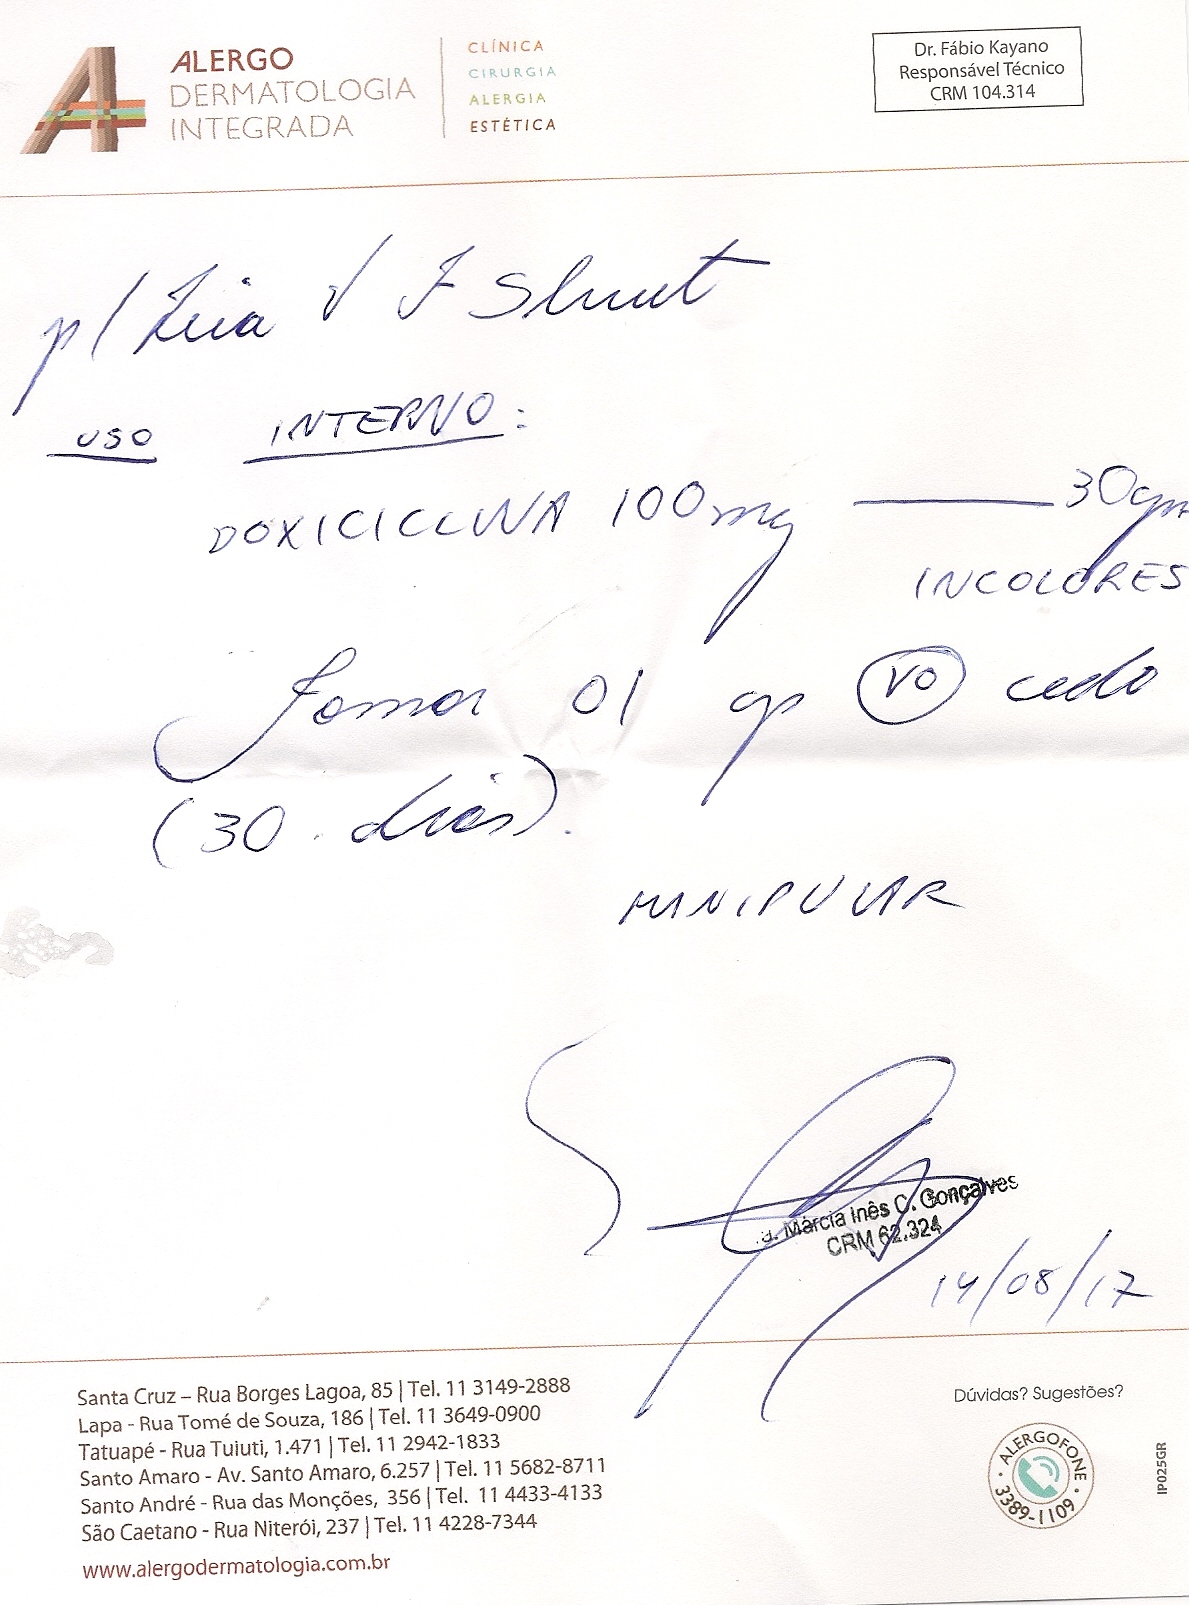 ALERGO
DERMATOLOGIA
INTEGRADA
CLÍNICA
CIRURGIA
ALERGIA
ESTÉTICA
Dr. Fábio Kayano
Responsável Técnico
CRM 104.314
p/
USO INTERNO:
DOXICICLINA 100mg 30cps
INCOLORES
Tomar 01 cp VO cedo
(30 dias).
MANIPULAR
Márcia Inês C. Gonçalves
CRM 62.324
14/08/17
Santa Cruz – Rua Borges Lagoa, 85 | Tel. 11 3149-2888
Lapa - Rua Tomé de Souza, 186 | Tel. 11 3649-0900
Tatuapé - Rua Tuiuti, 1.471 | Tel. 11 2942-1833
Santo Amaro - Av. Santo Amaro, 6.257 | Tel. 11 5682-8711
Santo André - Rua das Monções, 356 | Tel. 11 4433-4133
São Caetano - Rua Niterói, 237 | Tel. 11 4228-7344
www.alergodermatologia.com.br
Dúvidas? Sugestões?
ALERGOFONE
3389-1109
IP025GR